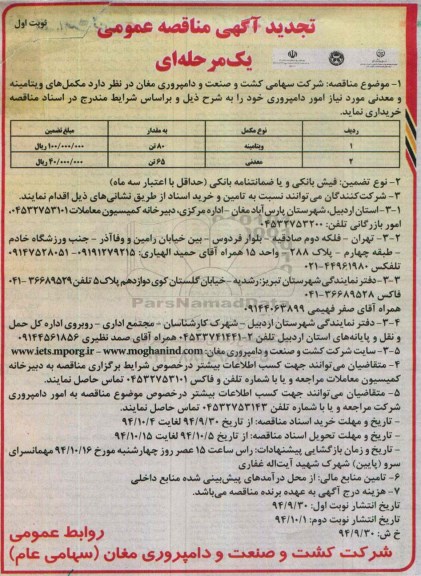 نوبت اول
تجدید آگهی مناقصه عمومی
یک‌مرحله‌ای
۱- موضوع مناقصه: شرکت سهامی کشت و صنعت و دامپروری مغان در نظر دارد مکمل‌های ویتامینه
و معدنی مورد نیاز امور دامپروری خود را به شرح ذیل و براساس شرایط مندرج در اسناد مناقصه
خریداری نماید.
ردیف نوع مکمل به مقدار مبلغ تضمین
۱ ویتامینه ۸۰ تن ۱۰۰/۰۰۰/۰۰۰ ریال
۲ معدنی ۶۵ تن ۴۰/۰۰۰/۰۰۰ ریال
۲- نوع تضمین: فیش بانکی و یا ضمانتنامه بانکی (حداقل با اعتبار سه ماه)
۳- شرکت‌کنندگان می‌توانند نسبت به تامین و خرید اسناد از طریق نشانی‌های ذیل اقدام نمایند.
۳-۱- استان اردبیل، شهرستان پارس‌آباد مغان - اداره مرکزی، دبیرخانه کمیسیون معاملات ۰۴۵۳۲۷۵۳۱۰۱،
امور بازرگانی تلفن: ۰۴۵۳۲۷۵۳۲۰۰
۳-۲- تهران - فلکه دوم صادقیه - بلوار فردوس - بین خیابان رامین و وفاآذر - جنب ورزشگاه خادم
- طبقه چهارم - پلاک ۲۸۸ - واحد ۱۵ همراه آقای حمید الهیاری: ۰۹۱۹۱۲۷۹۲۱۵-۰۹۱۴۷۵۲۸۰۵۱
تلفکس ۴۴۹۶۱۹۸۰-۰۲۱
۳-۳- دفتر نمایندگی شهرستان تبریز: رشدیه - خیابان گلستان کوی دوازدهم پلاک ۵ تلفن ۳۶۶۸۹۵۲۹-۰۴۱
فاکس ۳۶۶۸۹۵۲۸-۰۴۱
همراه آقای صفر فهیمی ۰۹۱۴۴۰۶۳۸۹۹
۳-۴- دفتر نمایندگی شهرستان اردبیل - شهرک کارشناسان - مجتمع اداری - روبروی اداره کل حمل
و نقل و پایانه‌های استان اردبیل تلفن ۲-۰۴۵۳۳۷۴۱۴۴۱ همراه آقای صمد نظیری ۰۹۱۴۴۵۶۱۸۵۶
۳-۵- سایت شرکت کشت و صنعت و دامپروری مغان: www.iets.mporg.ir - www.moghanind.com
۴- متقاضیان می‌توانند جهت کسب اطلاعات بیشتر درخصوص شرایط برگزاری مناقصه به دبیرخانه
کمیسیون معاملات مراجعه و یا با شماره تلفن و فاکس ۰۴۵۳۲۷۵۳۱۰۱ تماس حاصل نمایند.
۵- متقاضیان می‌توانند جهت کسب اطلاعات بیشتر درخصوص موضوع مناقصه به امور دامپروری
شرکت مراجعه و یا با شماره تلفن ۰۴۵۳۲۷۵۳۱۴۳ تماس حاصل نمایند.
- تاریخ و مهلت خرید اسناد مناقصه: از تاریخ ۹۴/۹/۳۰ لغایت ۹۴/۱۰/۴
- تاریخ و مهلت تحویل اسناد مناقصه: از تاریخ ۹۴/۱۰/۵ لغایت ۹۴/۱۰/۱۵
- تاریخ و زمان بازگشایی پیشنهادات: راس ساعت ۱۵ عصر روز چهارشنبه مورخ ۹۴/۱۰/۱۶ مهمانسرای
سرو (پایین) شهرک شهید آیت‌اله غفاری
۶- تامین منابع مالی: از محل درآمدهای پیش‌بینی شده منابع داخلی
۷- هزینه درج آگهی به عهده برنده مناقصه می‌باشد.
تاریخ انتشار نوبت اول: ۹۴/۹/۳۰
تاریخ انتشار نوبت دوم: ۹۴/۱۰/۱
خ ش: ۹۴/۹/۳۰
روابط عمومی
شرکت کشت و صنعت و دامپروری مغان (سهامی عام)
ParsNamadData